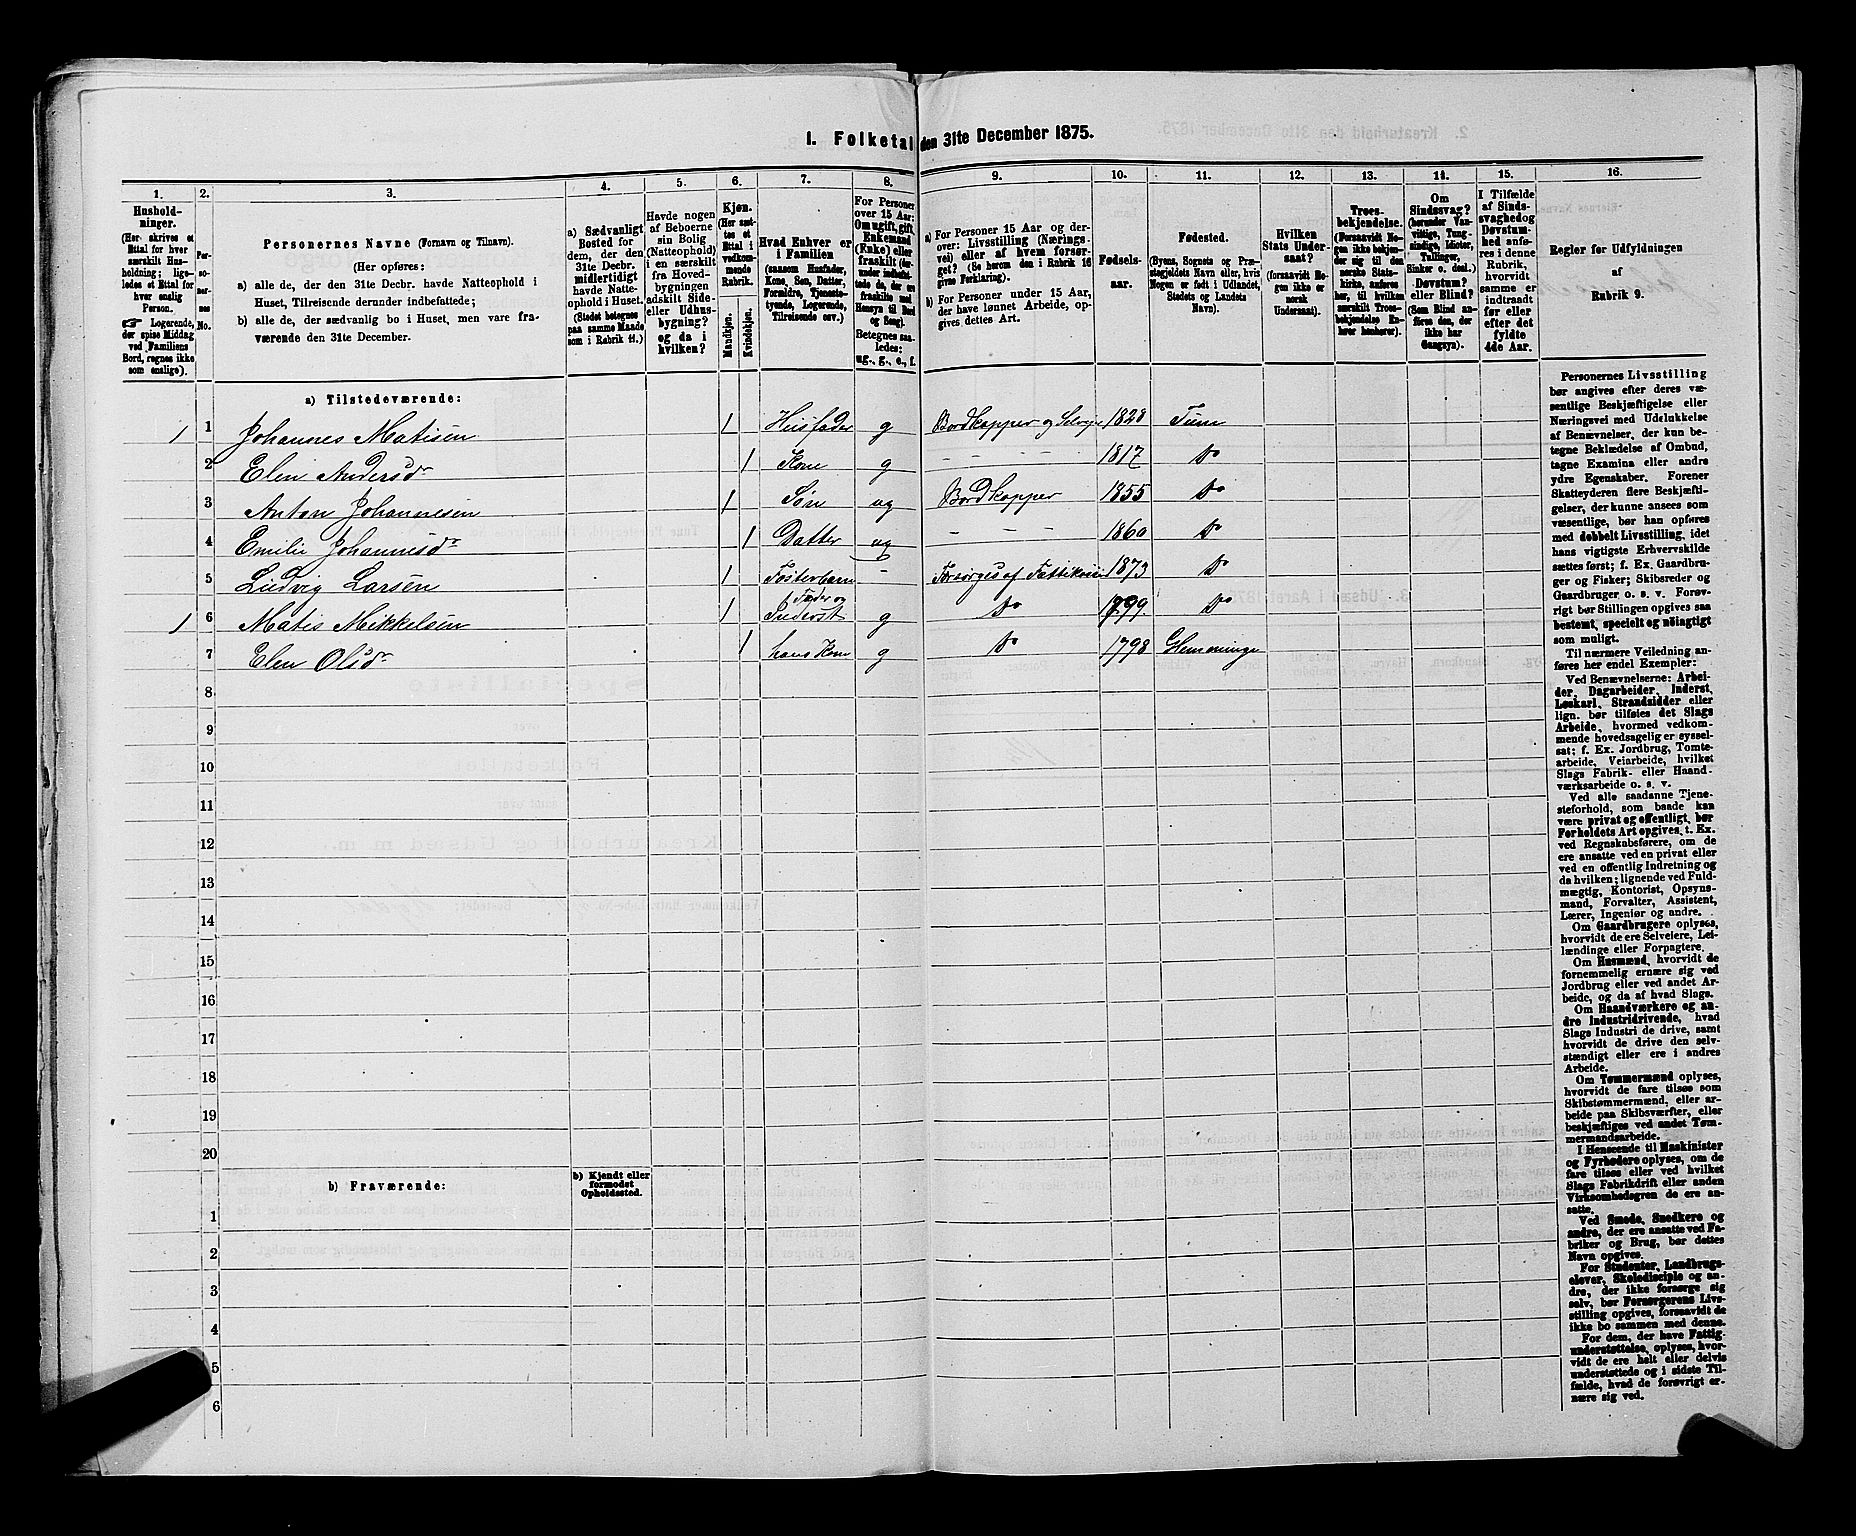 1. Folketal den 31te December 1875.
1. 2. 3. 4. 5. 6. 7. 8. 9. 10. 11. 12. 13. 14. 15. 16.
Husholdninger.
(Her skrives et
Ettal for hver
særskilt Husholdning;
ligeledes et Ettal for
hver enslig
Person.
☞ Logerende,
der spise Middag
ved Familiens
Bord, regnes ikke
som enslige).
Personernes No.
Personernes Navne (Fornavn og Tilnavn).
(Her opføres:
a) alle de, der den 31te Decbr. havde Natteophold i
Huset, Tilreisende derunder indbefattede;
b) alle de, der sædvanlig bo i Huset, men vare fraværende
den 31te December.
a) Sædvanligt
Bosted for
dem, der den
31te Decbr.
midlertidigt
havde Natteophold
i Huset.
(Stedet betegnes
paa samme Maade
som i Rubrik 11.)
Havde nogen
af Beboerne
sin Bolig
(Natteophold)
i en særskilt
fra Hovedbygningen
adskilt Side-
eller Udhusbygning?
og da i
hvilken?
Kjøn.
(Her sættes
et
Ettal i
vedkommende
Rubrik.
Mandkjøn.
Kvindekjøn.
Hvad Enhver er
i Familien
(saasom Husfader,
Kone, Søn, Datter,
Forældre, Tjenestetyende,
Logerende,
Tilreisende osv.)
For Personer
over 15 Aar:
Om ugift, gift,
Enkemand
(Enke) eller
fraskilt
Betegnes saaledes:
ug., g., e., f.
a) For Personer 15 Aar og derover:
Livsstilling (Næringsvei)
eller af hvem forsørget?
(Se herom den i Rubrik 16
givne Forklaring).
b) For Personer under 15 Aar,
der have lønnet Arbeide, opgives
dettes Art.
Fødselsaar.
Fødested.
(Byens, Sognets og Præstegjeldets
Navn eller, hvis
Nogen er født i Udlandet,
Stedets og Landets
Navn).
Hvilken
Stats Undersaat?
(forsaavidt Nogen
ikke er
norsk
Undersaat).
Troesbekjendelse.
(Forsaavidt Nogen
ikke bekjender
sig til den
norske Statskirke,
anføres
her, til hvilken
særskilt Troesbekjendelse
Enhver
henhører).
Om
Sindssvag?
(herunder Vanvittige,
Tungsindige,
Idioter,
Tullinger,
Sinker o. desl.)
Døvstum?
eller Blind?
(Som Blind anføres
den, der
ikke har
Gangsyn).
I Tilfælde
af Sindssvaghed
og
Døvstumhed
anføres
i denne
Rubrik,
hvorvidt
samme er
indtraadt
før eller
efter det
fyldte
4de Aar.
Regler for Udfyldningen
af
Rubrik 9.
a) Tilstedeværende:
1 1 Johannes Matisen 1 Husfader g Bordkapper og Selveier 1828 Tune
2 Elen Andersdr 1 Kone g - - - - 1817 Do
3 Anton Johannesen 1 Søn ug Bordkapper 1855 Do
4 Emilie Johannesdr 1 Datter ug - - - 1860 Do
5 Ludvig Larsen 1 Fosterbarn - Forsørges af Fattikvæs 1873 Do
1 6 Matis Mikkelsen 1 Fader og Inderst g Do 1799. Do
7 Elen Olsdr 1 hans Kone g Do 1798 Glemminge
8
9
10
11
12
13
14
15
16
17
18
19
20
b) Fraværende:
b) Kjendt eller
formodet
Opholdssted.
1
2
3
4
5
6
Personernes Livsstilling
bør angives efter deres væsentlige
Beskjæftigelse eller
Næringsvei med Udelukkelse
af Benævnelser, der kun betegne
Beklædelse af Ombud,
tagne Examina eller andre
ydre Egenskaber. Forener
Skatteyderen flere Beskjæftigelser,
der kunne ansees som
væsentlige, bør han opføres
med dobbelt Livsstilling, idet
hans vigtigste Erhvervskilde
sættes først; f. Ex. Gaardbruger
og Fisker; Skibsreder og
Gaardbruger o. s. v. Forøvrigt
bør Stillingen opgives saa
bestemt, specielt og nøiagtigt
som muligt.
Til nærmere Veiledning anføres
her endel Exempler:
Ved Benævnelserne: Arbeider,
Dagarbeider, Inderst,
Løskarl, Strandsidder eller
lign. bør tilføies det Slags
Arbeide, hvormed vedkommende
hovedsagelig er sysselsat;
f. Ex. Jordbrug, Tomtearbeide,
Veiarbeide, hvilket
Slags Fabrik- eller Haandværksarbeide
o. s. v.
Ved alle saadanne Tjenesteforhold,
som baade kan
være privat og offentligt, bør
Forholdets Art opgives, t. Ex.
ved Regnskabsførere, om de
ere ansatte ved en privat eller
ved en offentlig Indretning og
da hvilken; lignende ved Fuldmægtig,
Kontorist, Opsynsmand,
Forvalter, Assistent,
Lærer, Ingeniør og andre.
Om Gaardbrugere oplyses,
hvorvidt de ere Selveiere, Leilændinge
eller Forpagtere.
Om Husmænd, hvorvidt de
fornemmelig ernære sig ved
Jordbrug eller ved andet Arbeide,
og da af hvad Slags.
Om Haandværkere og andre
Industridrivende, hvad
Slags Industri de drive, samt
hvorvidt de drive den selvstændigt
eller ere i andres
Arbeide.
Om Tømmermænd oplyses,
hvorvidt de fare tilsøs som
Skibstømmermænd, eller arbeide
paa Skibsværfter, eller
beskjæftiges ved andet Tømmermandsarbeide.
I Henseende til Maskinister
og Fyrbødere oplyses, om de
fare tilsøs eller ved hvilket
Slags Fabrikdrift eller anden
Virksomhed de ere ansatte.
Ved Smede, Snedkere og
andre, der ere ansatte ved Fabriker
og Brug, bør dettes
Navn opgives.
For Studenter, Landbrugselever,
Skoledisciple og andre,
der ikke forsørge sig
selv, bør Forsørgerens Livsstilling
opgives, forsaavidt de
ikke bo sammen med denne.
For dem, der have Fattigunderstøttelse,
oplyses, hvorvidt
de ere helt eller delvis
understøttede og i sidste Tilfælde,
hvad de forøvrigt ernære
sig ved.